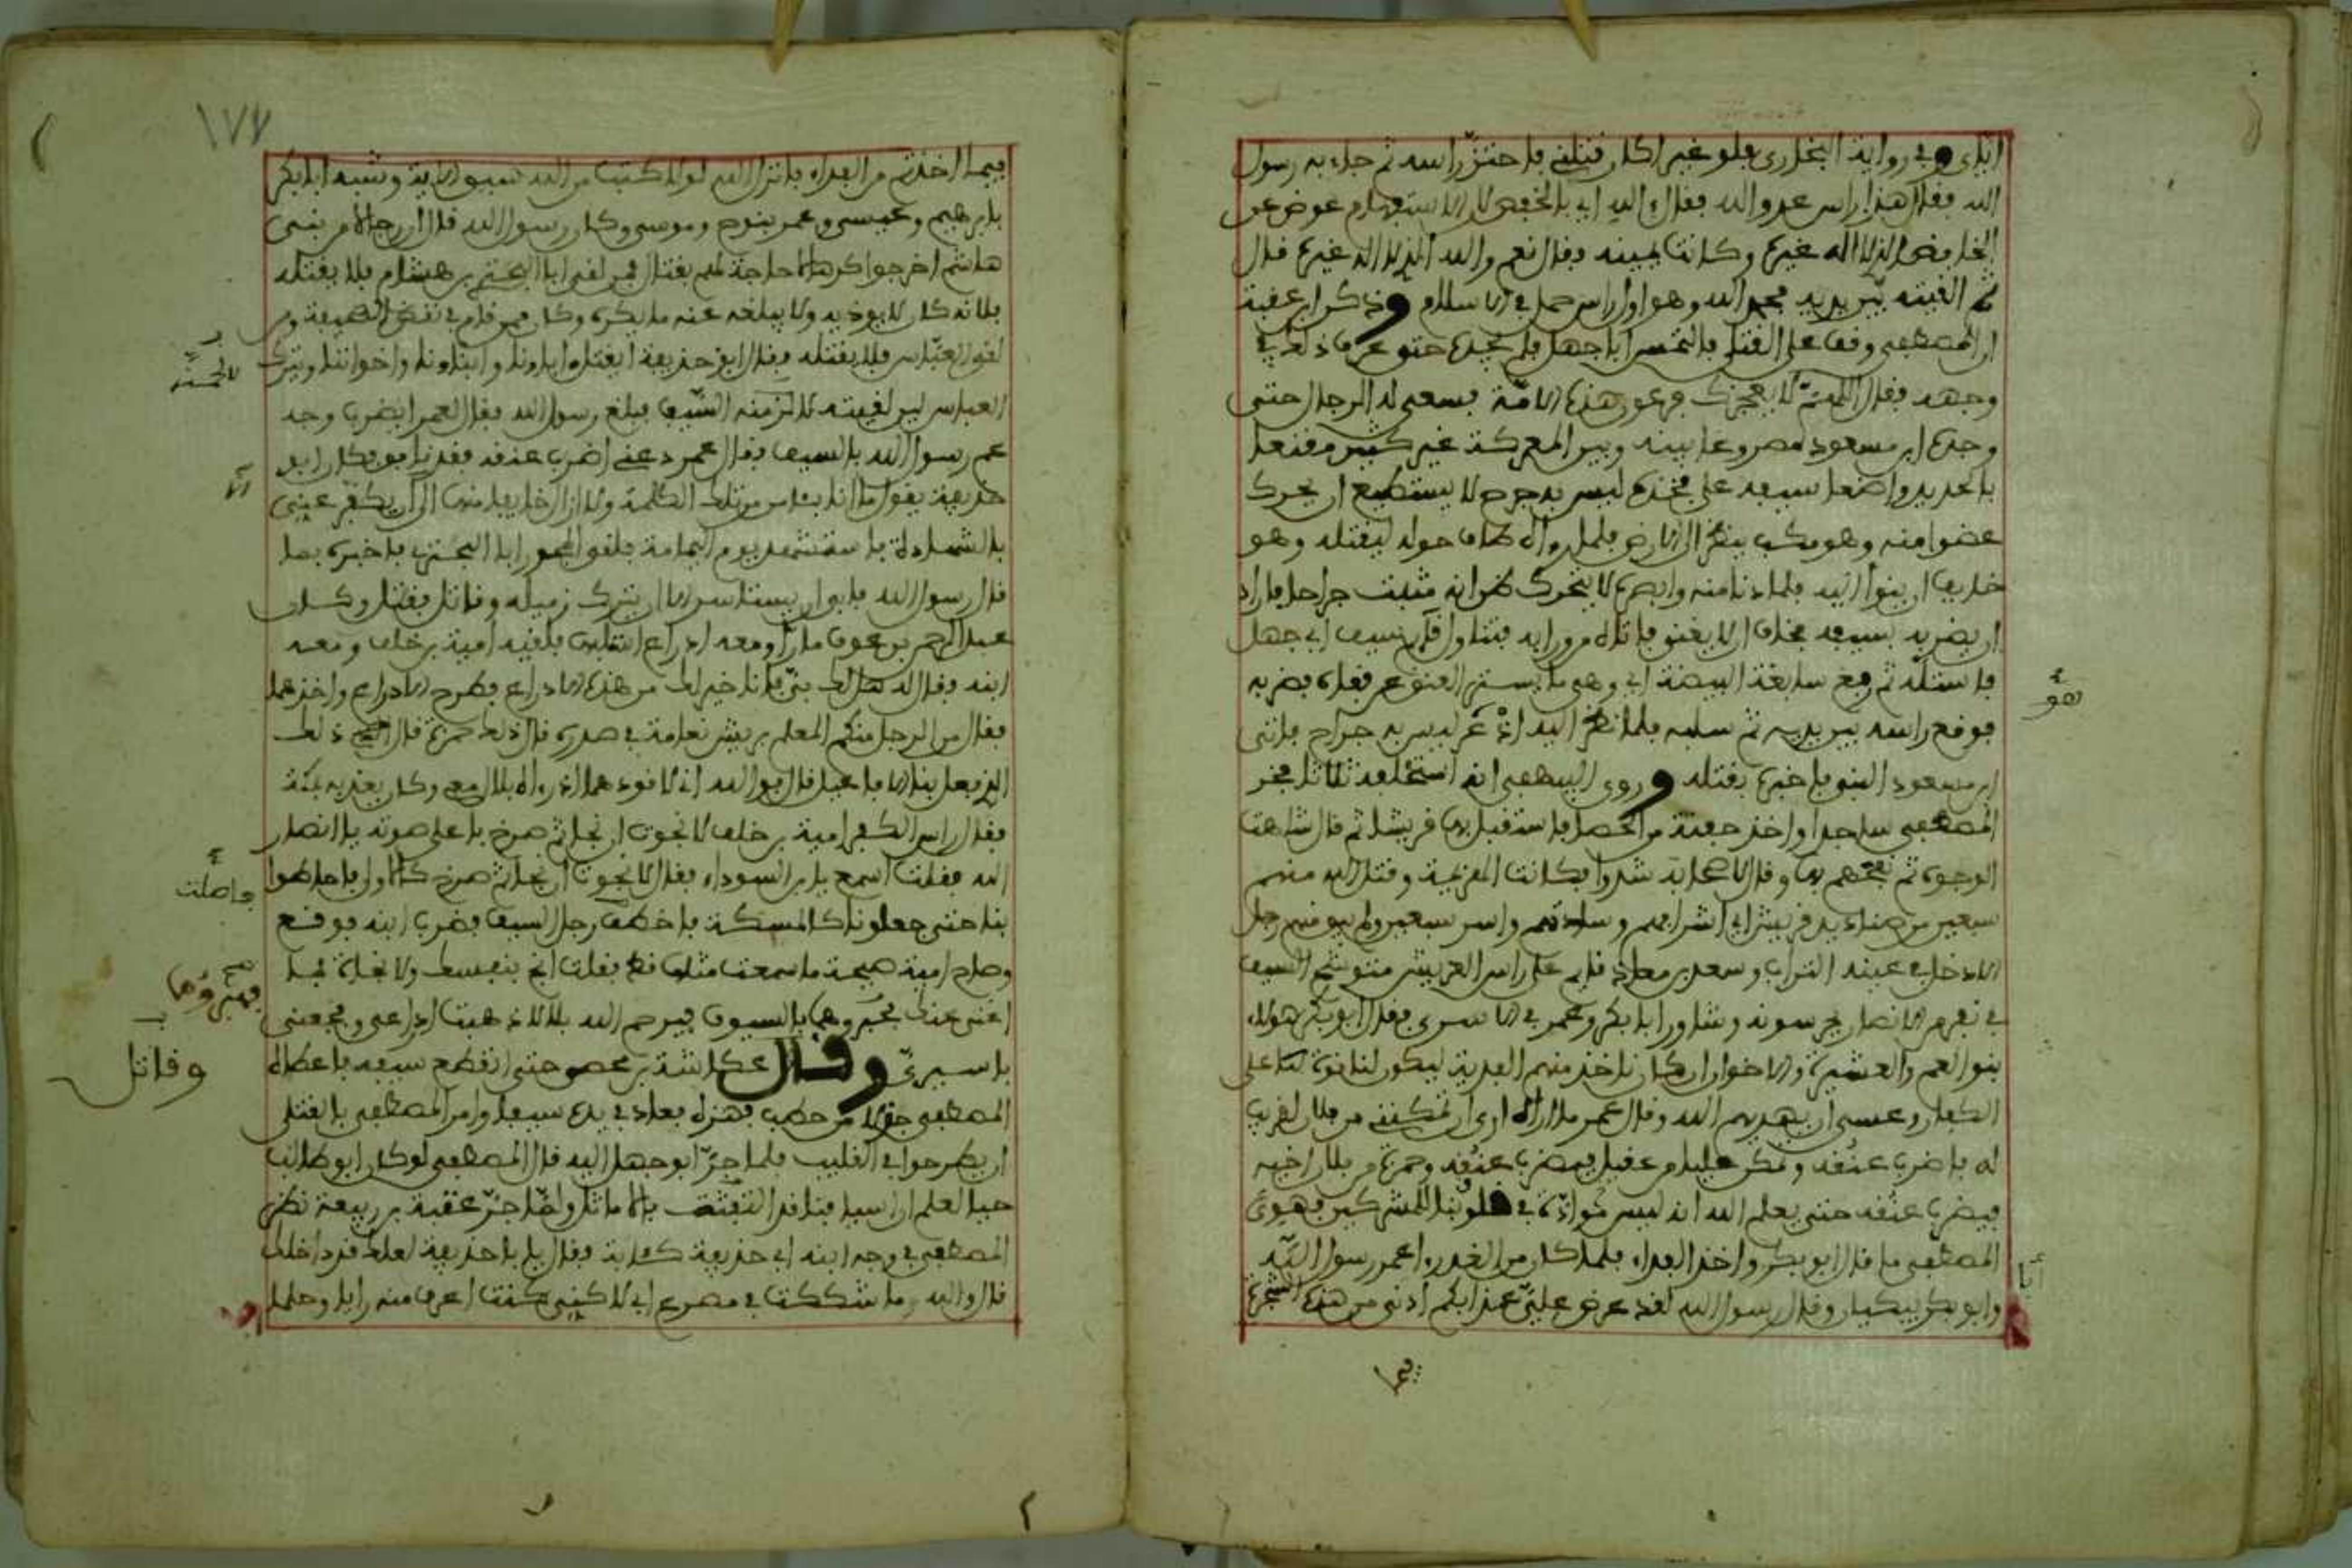 اباى وفي رواية البخاري فلو غير اكار قتلني فاحتز راسه ثم جاء به رسول
الله فقال هذا راس عدو الله فقال ءالله اي بالخفض لان الاستفهام عوض عن
الخافض الذي لا اله غيره وكانت يمينه فقال نعم والله الذي لا اله غيره قال
ثم القيته بين يديه فحمد الله وهو اول راس حمل في الاسلام وذكر ابن عقبة
ان المصطفى وقف على القتلى فالتمس ابا جهل فلم يجده حتى عرف ذلك في
وجهه فقال اللهم لا يعجزك فرعون هذه الامة فسعى له الرجال حتى
وجده ابن مسعود مصروعا بينه وبين المعركة غير كثير مقنعا
بالحديد واضعا سيفه على فخذه ليس به جرح لا يستطيع ان يحرك
عضوا منه وهو مكب ينظر الى الارض فلما رءاه طاف حوله ليقتله وهو
خايف ان ينوء اليه فلما دنا منه وابصره لا يتحرك ظن انه مثبت جراحا فاراد
ان يضربه بسيفه فخاف ان لا يغني فاتاه من ورايه فتناول قايم سيف ابي جهل
فاستله ثم رفع سابغة البيضة اي وهي ما يستر العنق عن قفاه فضربه
فوقع راسه بين يديه ثم سلبه فلما نظر اليه اذ هو ليس به جراح فاتى
ابن مسعود النبي فاخبره بقتله وروى البيهقي انه استحلفه ثلاثا فخر
المصطفى ساجدا واخذ حفنة من الحصا فاستقبل بها قريشا ثم قال شاهت
الوجوه ثم نفحهم بها وقال لاصحابه شدوا فكانت الهزيمة وقتل الله منهم
سبعين من صناديد قريش اي اشرافهم وسادتهم واسر سبعين ولم يبق منهم رجل
الا دخل في عينه التراب وسعد بن معاذ قايم على راس العريش متوشح السيف
في نفر من الانصار يحرسونه وشاور ابا بكر وعمر في الاسرى فقال ابو بكر هولاء
بنو العم والعشيرة والاخوان ارى ان ناخذ منهم الفدية ليكون لنا قوة على
الكفار وعسى ان يهديهم الله وقال عمر ما اراه ارى ان تمكنني من فلان لقريب
له فاضرب عنقه وتمكن عليا من عقيل فيضرب عنقه وحمزة من فلان اخيه
فيضرب عنقه حتى يعلم الله انه ليس موادة في قلوبنا للمشركين فهوى
المصطفى ما قال ابو بكر واخذ الفداء فلما كان من الغد رءا عمر رسول الله
وابو بكر يبكيان وقال رسول الله لقد عرض علي عذابكم ادنى من هذه الشجرة
هو
انا
فيما
١٧٧
فيما اخذتم من الفداء فانزل الله لولا كتاب من الله سبق الاية وشبه ابا بكر
بابرهيم وعيسى وعمر بنوح وموسى وكان رسول الله قال ان رجالا من بني
هاشم اخرجوا كرها لا حاجة لهم بقتال فمن لقي ابا البختري بن هشام فلا يقتله
فانه كان لا يوذيه ولا يبلغه عنه ما يكره وكان ممن قام في نقض الصحيفة ومن
لقي العباس فلا يقتله فقال ابو حذيفة ايقتل اباونا وابناونا واخواننا ونترك
العباس لين لقيته لالزمنه السيف فبلغ رسول الله فقال لعمر ايضرب وجه
عم رسول الله بالسيف فقال عمر دعني اضرب عنقه فقد نافق فكان ابو
حذيفة يقول ما انا بئامن من تلك الكلمة ولا ازال خايفا منها الى ان يكفر عني
بالشهادة فاستشهد يوم اليمامة فلقي المجذر ابا البختري فاخبره بما
قال رسول الله فابى ان يستاسر الا ان يترك زميله وقاتل فقتل وكان
عبد الرحمن بن عوف مارا ومعه ادراع استلبها فلقيه امية بن خلف ومعه
ابنه فقال له هل لك في فانا خير لك من هذه الادراع فطرح الادراع واخذهما
فقال من الرجل منكم المعلم بريش نعامة في صدره قال ذلك حمزة قال ذلك
الذي فعل بنا الافاعيل قال فوالله اني لاقودهما اذ رءاه بلال معي وكان يعذبه بمكة
فقال راس الكفر امية بن خلف لا نجوت ان نجا ثم صرخ باعلى صوته يا انصار
الله فقلت اتسمع يا ابن السوداء فقال لا نجوت ان نجا ثم صرخ كالاول فاحاطوا
بنا حتى جعلونا كالمسكة فاخطف رجل السيف فضرب ابنه فوقع
وصاح امية صيحة ما سمعت مثلها قط فقلت انج بنفسك ولا نجاة فما
اغني عنك فهبروهما بالسيوف فيرحم الله بلالا ذهبت ادراعي وفجعني
باسيري وقال عكاشة بن محصن حتى انقطع سيفه فاعطاه
المصطفى جذلا من حطب فهزه فعاد في يده سيفا وامر المصطفى بالقتلى
ان يطرحوا في القليب فلما جر ابو جهل اليه قال المصطفى لو كان ابو طالب
حيا لعلم ان اسيافنا قد التبست بالاماثل ولما جر عتبة بن ربيعة نظر
المصطفى في وجه ابنه ابي حذيفة كئابة فقال يا ابا حذيفة لعلك قد داخلك
قال والله ما شككت في مصرع ابي لاكني كنت اعرف منه رايا وحلما
فاصلت
فهبروهما
وقاتل